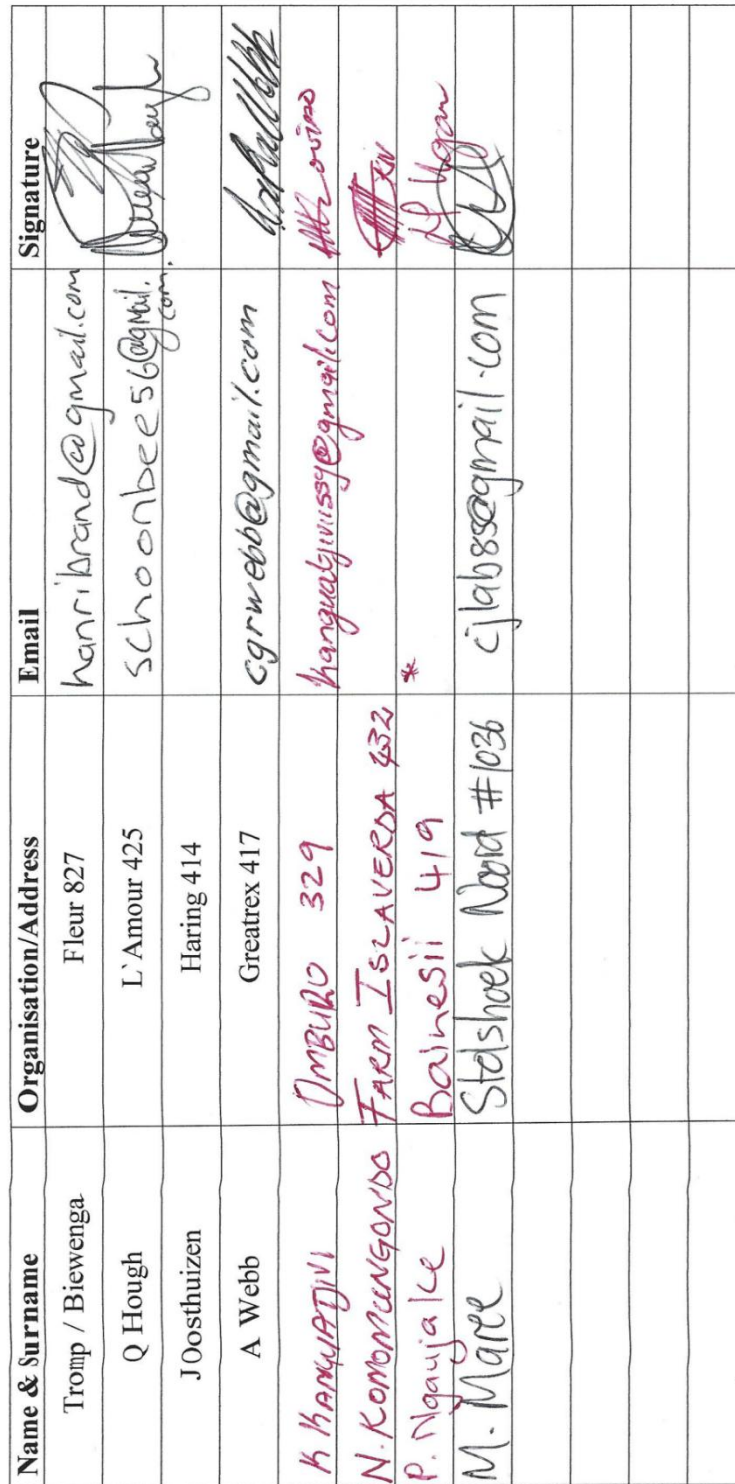 Name & Surname Organisation/Address Email Signature
Tromp / Biewenga Fleur 827 hanribrand@gmail.com
Q Hough L`Amour 425 schoonbee56@gmail.com.
J Oosthuizen Haring 414
A Webb Greatrex 417 cgrwebb@gmail.com
K KANGUATJIVI OMBURO 329
N. KOMOMUNGONDO FARM ISLAVERDA 432
P. Ngaujake Bainesii 419 *
M. Maree Stolshoek Noord #1036 cjlab85@gmail.com